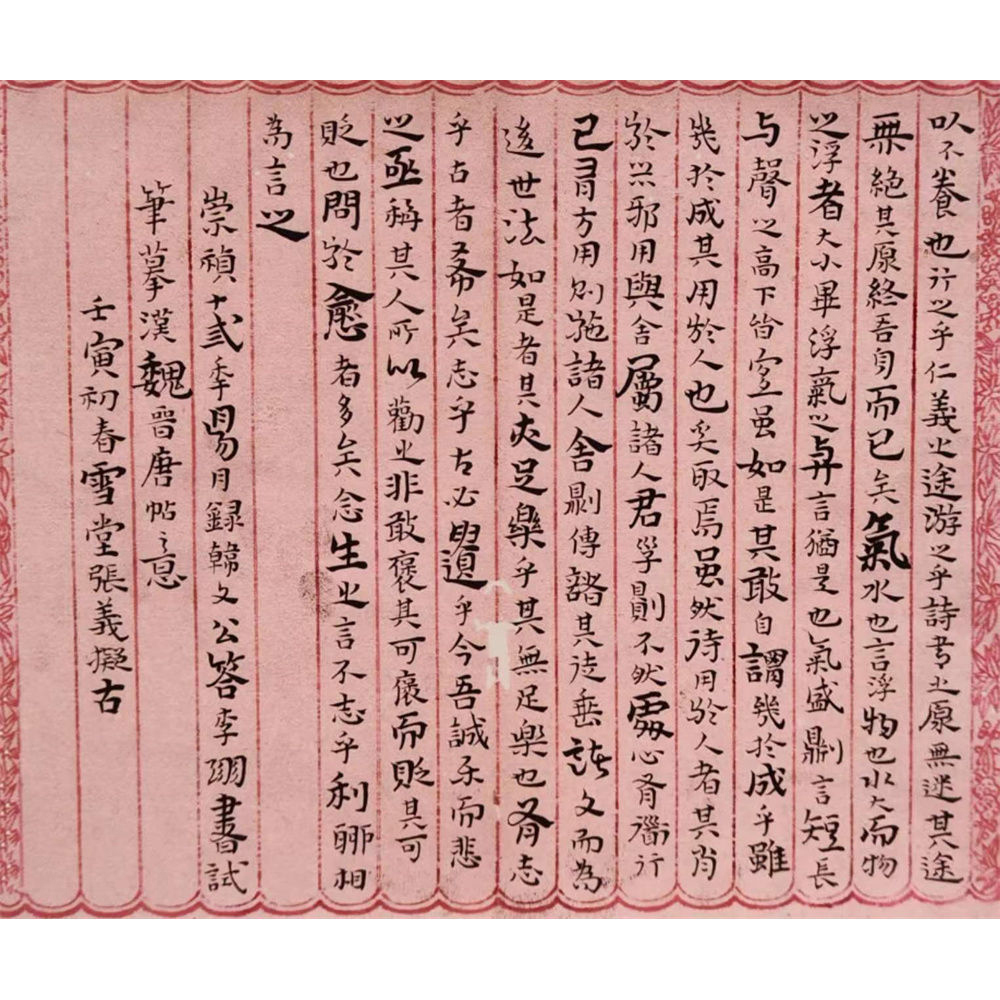 以不養也行之乎仁義之途游之乎詩書之原無迷其途
無絕其原終吾身而已矣氣水也言浮物也水大而物
之浮者大小畢浮氣之與言猶是也氣盛則言短長
与聲之高下皆宜虽如是其敢自謂幾於成乎雖
幾於成其用於人也奚取焉虽然待用於人者其肖
於器邪用與舍屬諸人君子則不然處心有道行
己有方用則施諸人舍則傳諸其徒垂諸文而為
後世法如是者其亦足樂乎其無足樂也有志
乎古者希矣志乎古必遺乎今吾誠樂而悲
之亟稱其人所以勸之非敢褒其可褒而貶其可
貶也問於愈者多矣念生之言不志乎利聊相
為言之
崇禎十貳年昜月録韓文公答李翊書試
筆摹漢魏晋唐帖之意
壬寅初春雪堂張義擬古